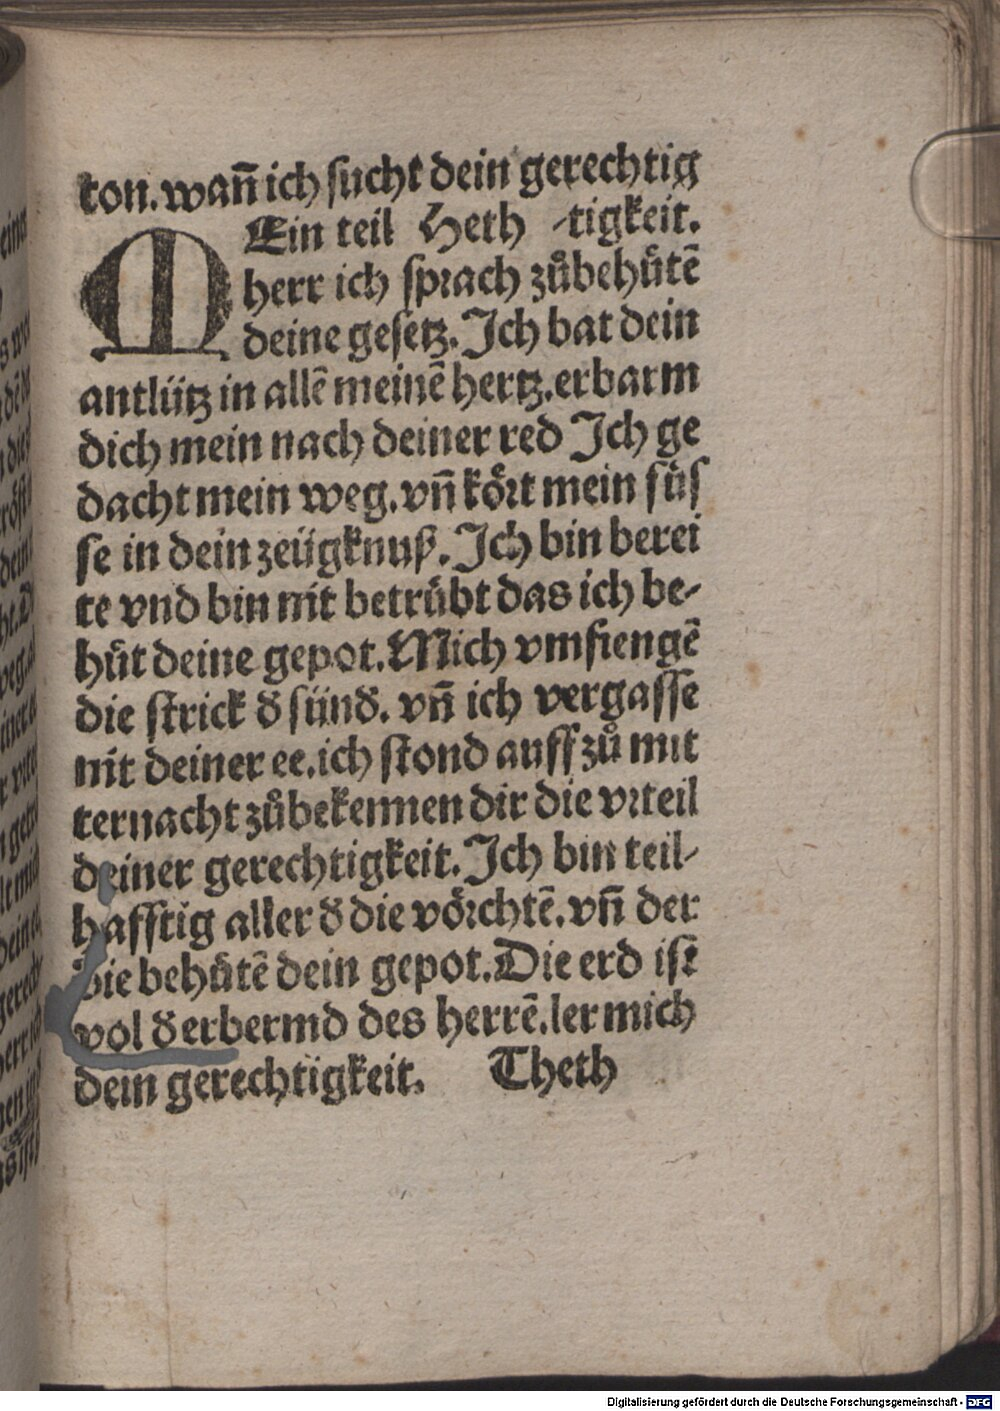 ton. wañ ich sucht dein gerechtig
MEin teil Heth -tigkeit.
herr ich sprach zůbehůtē
deine gesetz. Ich bat dein
antlütz in allē meinē hertz. erbarm
dich mein nach deiner red Ich ge
dacht mein weg. vñ kört mein füs
se in dein zeügknuß. Ich bin berei
te vnd bin nit betrübt das ich be-
hüt deine gepot. Mich vmfiengē
die strick d̕ sünd̕. vñ ich vergasse
nit deiner ee. ich stond auff zů mit
ternacht zůbekennen dir die vrteil
deiner gerechtigkeit. Ich bin teil-
hafftig aller d̕ die vörchtē. vñ der
die behütē dein gepot. Die erd ist
vol d̕ erbermd des herrē. ler mich
dein gerechtigkeit. Theth
Digitalisierung gefördert durch die Deutsche Forschungsgemeinschaft - DFG